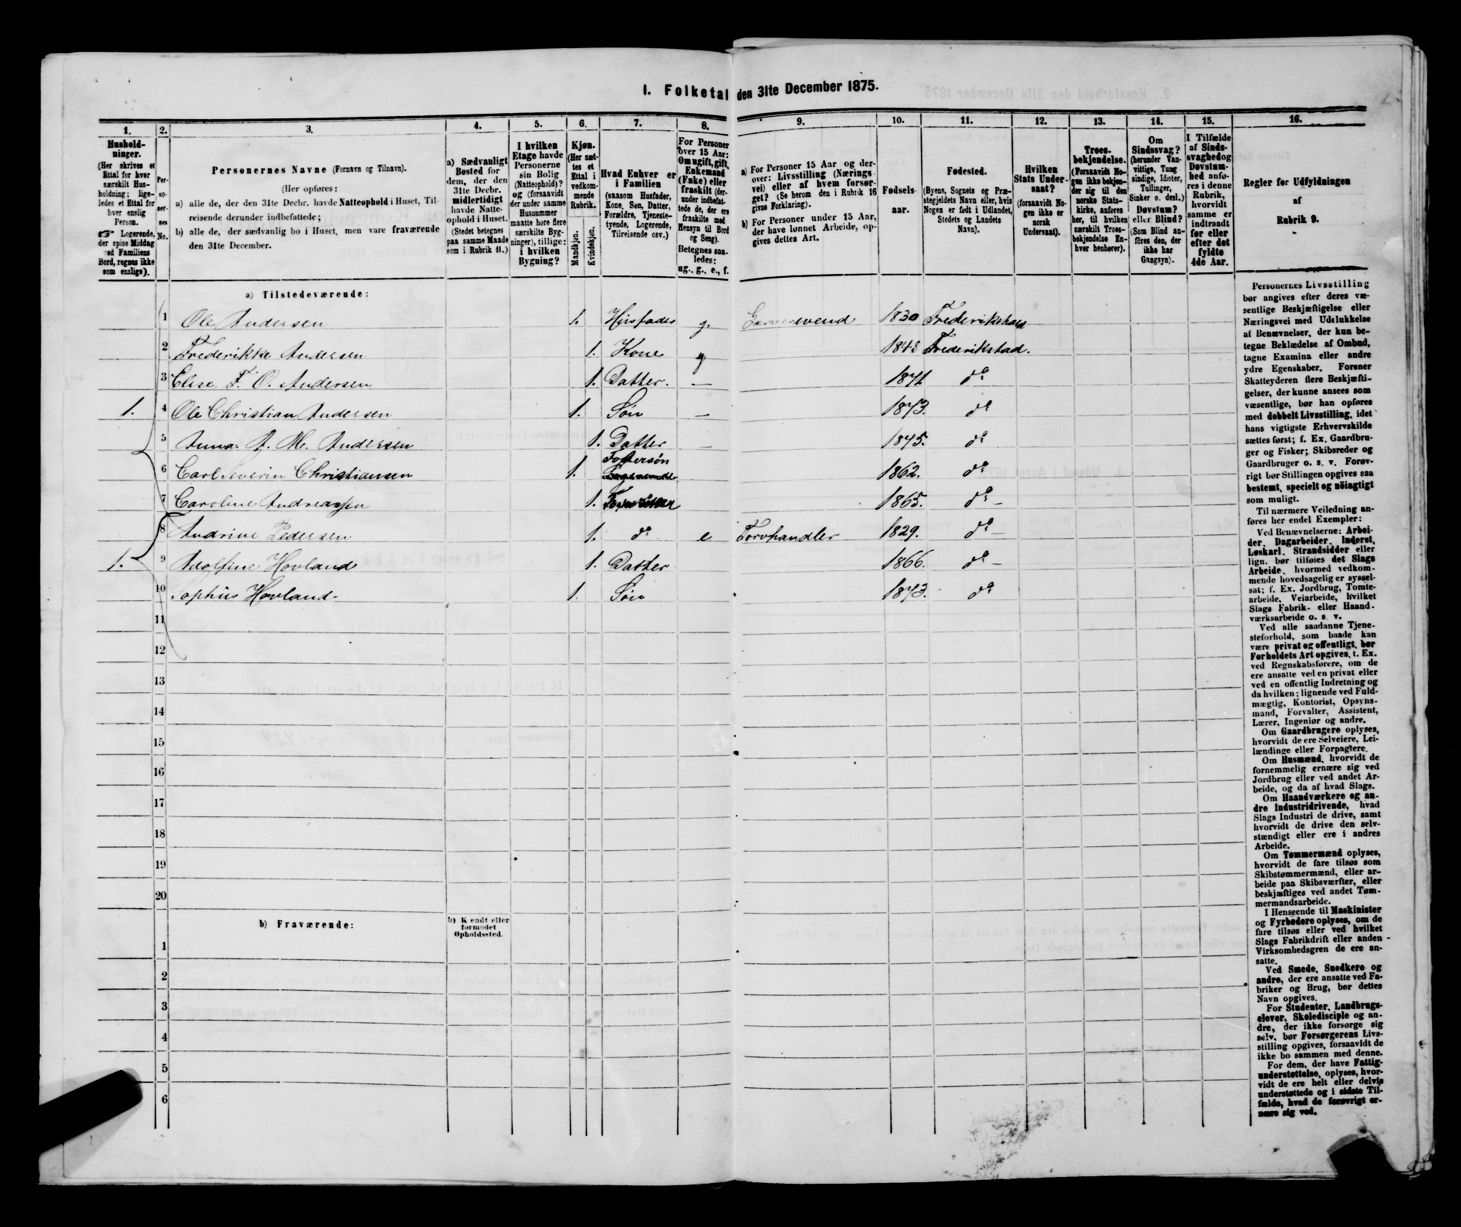 1. Folketal den 31te December 1875.
1. 2. 3. 4. 5. 6. 7. 8. 9. 10. 11. 12. 13. 14. 15. 16.
Hushold-
ninger.
(Her skrives et
Ettal for hver
særskilt Hus-
holdning; lige-
ledes et Ettal for
hver enslig
Person.
☞ Logerende,
der spise Middag
ved Familiens
Bord, regnes ikke
som enslige).
Per-
so-
ner-
nes
No.
Personernes Navne (Fornavn og Tilnavn).
(Her opføres:
a) alle de, der den 31te Decbr. havde Natteophold i Huset, Til-
reisende derunder indbefattede;
b) alle de, der sædvanlig bo i Huset, men vare fraværende
den 31te December.
a) Sædvanligt
Bosted for
dem, der den
31te Decbr.
midlertidigt
havde Natte-
ophold i Huset.
(Stedet betegnes
paa samme Maade
som i Rubrik 11.)
I hvilken
Etage havde
Personerne
sin Bolig
(Natteophold)?
og (forsaavidt
der under samme
Husnummer
maatte høre flere
særskilte Byg-
ninger), tillige:
i hvilken
Bygning?
Kjøn.
(Her sæt-
tes et
Ettal i
vedkom-
mende
Rubrik.
Mandkjøn.
Kvindekjøn.
Hvad Enhver er
i Familien
(saasom Husfader,
Kone, Søn, Datter,
Forældre, Tjeneste-
tyende, Logerende,
Tilreisende osv.)
For Personer
over 15 Aar:
Om ugift, gift,
Enkemand
(Enke) eller
fraskilt (der-
under indbefat-
tede de, der ere
fraskilte med
Hensyn til Bord
og Seng).
Betegnes saa-
ledes:
ug., g., e., f.
a) For Personer 15 Aar og der-
over: Livsstilling (Nærings
vei) eller af hvem forsør-
get? (Se herom den i Rubrik 16
givne Forklaring).
b) For Personer under 15 Aar,
der have lønnet Arbeide, op-
gives dettes Art.
Fødsels-
aar.
Fødested.
(Byens, Sognets og Præ-
stegjeldets Navn eller, hvis
Nogen er født i Udlandet,
Stedets og Landets
Navn).
Hvilken
Stats Under-
saat?
(forsaavidt No-
gen ikke er
norsk
Undersaat).
Troes-
bekjendelse.
(Forsaavidt No-
gen ikke bekjen-
der sig til den
norske Stats-
kirke, anføres
her, til hvilken
særskilt Troes-
bekjendelse En-
hver henhører).
Om
Sindssvag?
(herunder Van-
vittige, Tung
sindige, Idioter,
Tullinger,
Sinker o. desl.)
Døvstum?
eller Blind?
(Som Blind an-
føres den, der
ikke har
Gangsyn).
I Tilfælde
af Sinds-
svaghed og
Døvstum-
hed anfø-
res i denne
Rubrik,
hvorvidt
samme er
indtraadt
før eller
efter det
fyldte
4de Aar.
Regler for Udfyldningen
af
Rubrik 9.
a) Tilstedeværende:
1 Ole Andersen 1. Husfader g. 1830 Frederikshald
2 Frederikke Andersen 1. Kone g 1848 Frederikstad.
3 Elise F. O. Andersen 1. Datter. — 1871. do
1. 4 Ole Christian Andersen 1. Søn — 1873. do
5 Anna A. M. Andersen 1. Datter — 1875. do
6 Carl Severin Christiansen 1. Fostersøn 1862. do
7 Caroline Andreassen 1. 1865. do
8 Andrine Pedersen 1. do e Torvhandler 1829. do
1. 9 Adolfine Hovland 1. Datter 1866. do
10 Sophus Hovland 1. Søn 1873. do
11
12
13
14
15
16
17
18
19
20
b) Fraværende:
b) Kjendt eller
formodet
Opholdssted.
1
2
3
4
5
6
Personernes Livsstilling
bør angives efter deres væ-
sentlige Beskjæftigelse eller
Næringsvei med Udelukkelse
af Benævnelser, der kun be-
tegne Beklædelse af Ombud,
tagne Examina eller andre
ydre Egenskaber. Forener
Skatteyderen flere Beskjæfti-
gelser, der kunne ansees som
væsentlige, bør han opføres
med dobbelt Livsstilling, idet
hans vigtigste Erhvervskilde
sættes først; f. Ex. Gaardbru-
ger og Fisker; Skibsreder og
Gaardbruger o. s. v. Forøv-
rigt bør Stillingen opgives saa
bestemt, specielt og nöiagtigt
som muligt.
Til nærmere Veiledning an-
føres her endel Exempler:
Ved Benævnelserne: Arbei-
der, Dagarbeider, Inderst,
Løskarl, Strandsidder eller
lign. bør tilføies det Slags
Arbeide, hvormed vedkom-
mende hovedsagelig er syssel-
sat; f. Ex. Jordbrug, Tomte-
arbeide, Veiarbeide, hvilket
Slags Fabrik- eller Haand-
værksarbeide o. s. v.
Ved alle saadanne Tjene-
steforhold, som baade kan
være privat og offentligt, bør
Forholdets Art opgives, f. Ex.
ved Regnskabsførere, om de
ere ansatte ved en privat eller
ved en offentlig Indretning og
da hvilken; lignende ved Fuld-
mægtig, Kontorist, Opsyns-
mand, Forvalter, Assistent,
Lærer, Ingeniør og andre.
Om Gaardbrugere oplyses,
hvorvidt de ere Selveiere, Lei-
lændinge eller Forpagtere.
Om Husmænd, hvorvidt de
fornemmelig ernære sig ved
Jordbrug eller ved andet Ar-
beide, og da af hvad Slags.
Om Haandværkere og an-
dre Industridrivende, hvad
Slags Industri de drive, samt
hvorvidt de drive den selv-
stændigt eller ere i andres
Arbeide.
Om Tømmermænd oplyses,
hvorvidt de fare tilsøs som
Skibstømmermænd, eller ar-
beide paa Skibsværfter, eller
beskjæftiges ved andet Tøm-
mermandsarbeide.
I Henseende til Maskinister
og Fyrbødere oplyses, om de
fare tilsøs eller ved hvilket
Slags Fabrikdrift eller anden
Virksomhedsgren de ere an-
satte.
Ved Smede, Snedkere og
andre, der ere ansatte ved Fa-
briker og Brug, bør dettes
Navn opgives.
For Studenter, Landbrugs-
elever, Skoledisciple og an-
dre, der ikke forsørge sig
selv, bør Forsørgerens Livs-
stilling opgives, forsaavidt de
ikke bo sammen med denne.
For dem, der have Fattig-
understøttelse, oplyses, hvor-
vidt de ere helt eller delvis
understøttede og i sidste Til-
fælde, hvad de forøvrigt er-
nære sig ved.